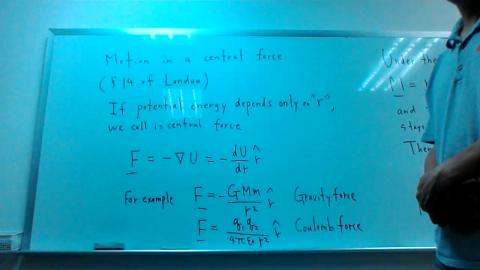 Motion in a central force
(§14 of London)
If potential energy depends only on "r",
we call is central force
F = -∇U = - dU/dr r̂
For example F = - GMm/r² r̂ Gravity force
F = q₁q₂/4πε₀r² r̂ Coulomb force
Under the
M =
and
stays
Ther